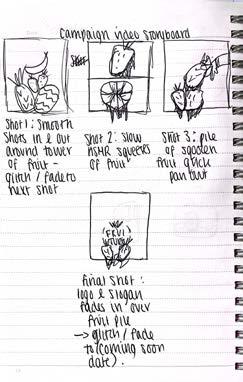 Campaign video storyboard
Shot 1: Smooth
shots in & out
around tower
of fruit -
glitch / fade to
next shot
Shot 2: slow
ASMR squeeze
of fruit
Shot 3: pile
of
fruit quick
pan out
final shot:
logo & slogan
fades in over
fruit pile
→ glitch / fade
to (coming soon
date).